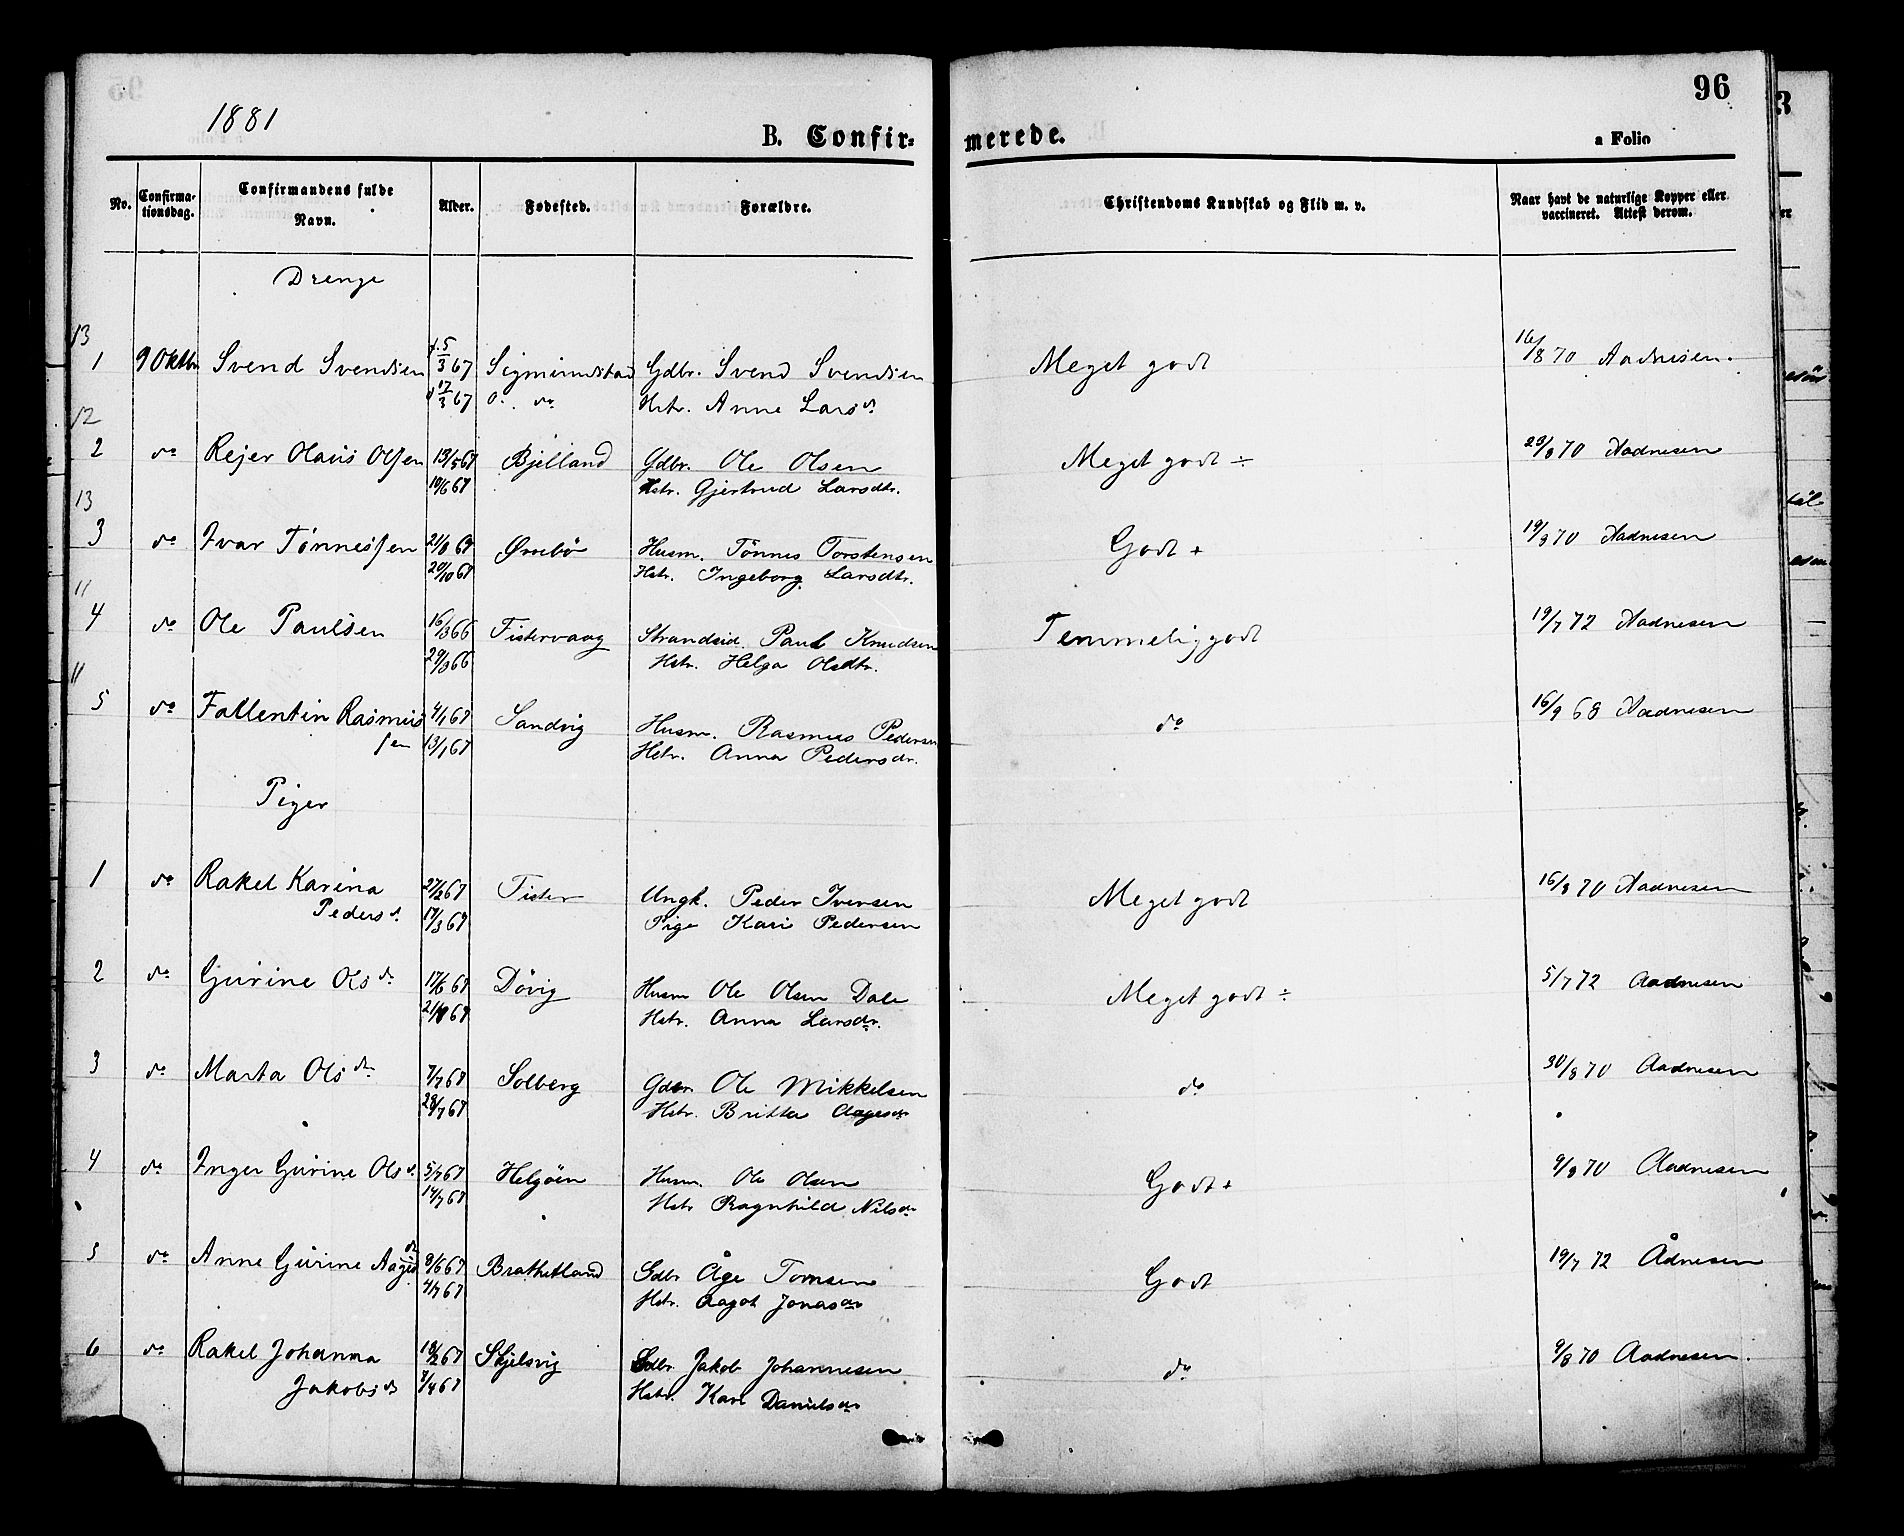 96
1881
B. Confir-
merede.
a Folio
No.
Confirma-
tionsdag.
Confirmandens fulde
Navn.
Alder.
Fødested.
Forældre.
Christendoms Kundskab og Flid m. v.
Naar havt de naturlige Kopper eller
vaccineret. Attest derom.
Drenge
13
1 9 Oktbr Svend Svendsen f. 5/3 67 Sigmundstad Gdbr. Svend Svendsen Meget godt 16/8 70 Aadnesen.
d 17/3 67 do Hstr. Anne Larsdr
12
2 do Rejer Olaus Olsen 13/5 67 Bjelland Gdbr. Ole Olsen Meget godt ÷ 23/8 70 Aadnesen
10/6 67 Hstr. Gjertrud Larsdtr.
13
3 do Ivar Tønnessen 21/8 67 Ørebø Husm. Tønnes Torstensen Godt + 19/8 70 Aadnesen
20/10 67 Hstr. Ingeborg Larsdtr.
11
4 do Ole Paulsen 16/3 66 Fistervaag Strandsid. Paul Knudsen Temmelig godt 19/7 72 Aadnesen
29/3 66 Hstr. Helga Olsdtr.
11
5 do Fallentin Rasmus 4/1 67 Sandvig Husm. Rasmus Pedersen do 16/9 68 Aadnesen
sen 13/1 67 Hstr. Anna Pedersdr.
Piger
1 do Rakel Karina 27/2 67 Fister Ungk. Peder Iversen Meget godt 16/8 70 Aadnesen
Pedersd. 17/3 67 Pige Kari Pedersen
2 do Gurine Olsdr 17/6 67 Døvig Husm Ole Olsen Dale Meget godt ÷ 5/7 72 Aadnesen
67 Hstr. Anna Larsdr.
3 do Marta Olsdr 7/7 67 Solberg Gdbr Ole Mikkelsen do 30/8 70 Aadnesen
28/7 67 Hstr. Britta Aagesdr
4 do Inger Gurine Olsd. 5/7 67 Helgøen Husm. Ole Olsen Godt + 9/8 70 Aadnesen
14/7 67 Hstr Ragnhild Nilsdr
5 do Anne Gurine Aagesdr 9/6 67 Brathetland Gdbr Åge Tomsen Godt 19/7 72 Ådnesen
4/7 67 Hstr. Aagot Jonasdr
6 do Rakel Johanna 18/2 67 Skjelsvig Gdbr Jakob Johannesen do 9/8 70 Aadnesen.
Jakobsdr 7/4 67 Hstr. Kari Danielsdr